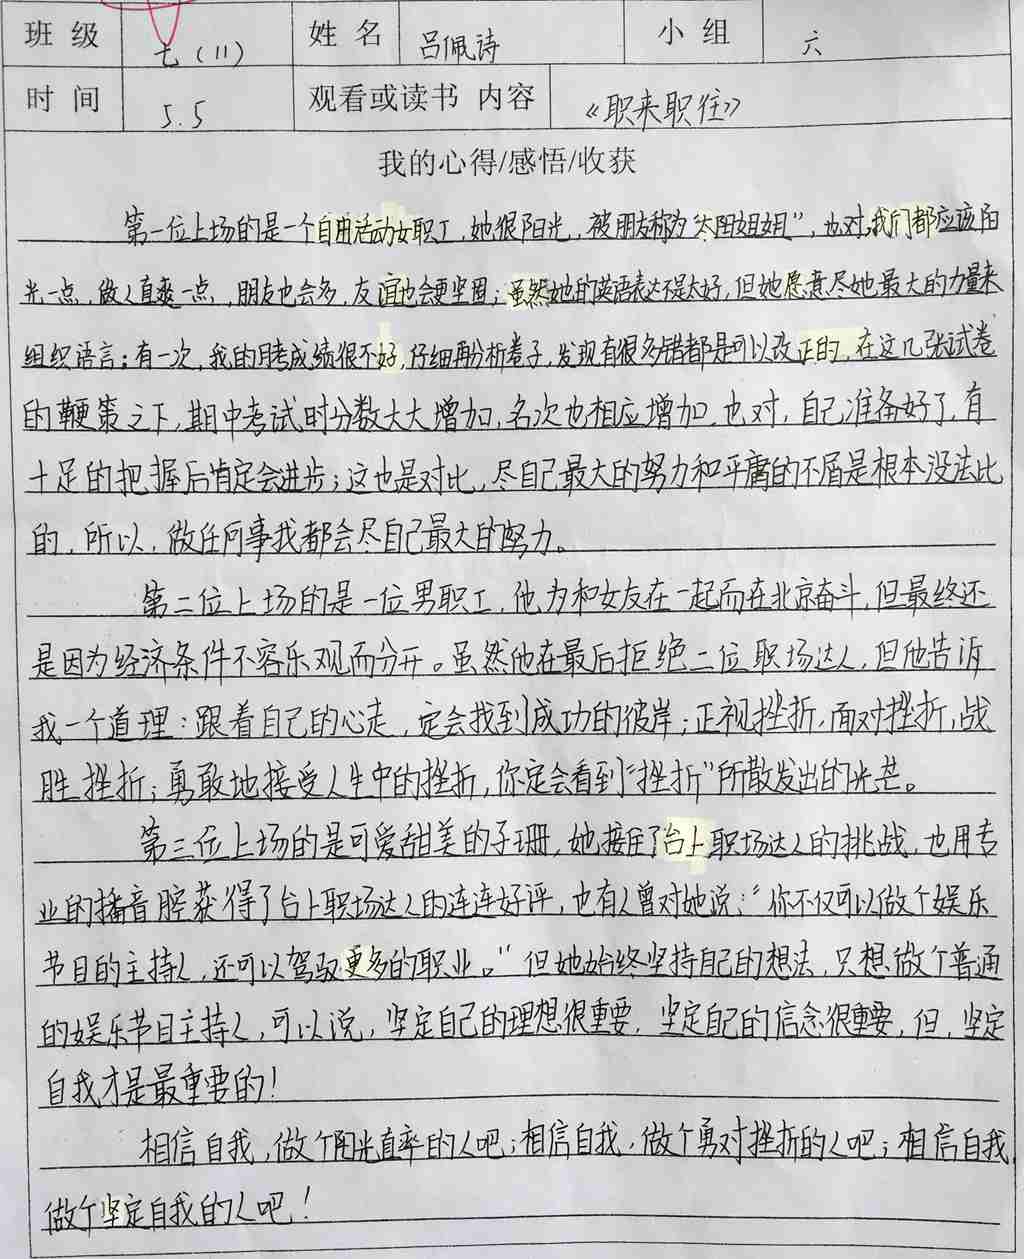 班级 七（11） 姓名 吕佩诗 小组 六
时间 5.5 观看或读书 内容 《职来职往》
我的心得/感悟/收获
第一位上场的是一个自由活动女职工,她很阳光,被朋友称为“太阳姐姐”,也对,我们都应该阳
光一点,做人直爽一点,朋友也会多,友谊也会更坚固；虽然她的英语表达不是太好,但她愿意尽她最大的力量来
组织语言；有一次,我的月考成绩很不好,仔细再分析卷子,发现有很多错都是可以改正的,在这几张试卷
的鞭策之下,期中考试时分数大大增加,名次也相应增加,也对,自己准备好了,有
十足的把握后肯定会进步；这也是对比,尽自己最大的努力和平庸的不屑是根本没法比
的,所以,做任何事我都会尽自己最大的努力。
第二位上场的是一位男职工,他为和女友在一起而在北京奋斗,但最终还
是因为经济条件不容乐观而分开。虽然他在最后拒绝二位职场达人,但他告诉
我一个道理：跟着自己的心走,定会找到成功的彼岸；正视挫折,面对挫折,战
胜挫折；勇敢地接受人生中的挫折,你定会看到“挫折”所散发出的光芒。
第三位上场的是可爱甜美的子珊,她接住了台上职场达人的挑战,也用专
业的播音腔获得了台上职场达人的连连好评,也有人曾对她说：“你不仅可以做个娱乐
节目的主持人,还可以驾驭更多的职业。”但她始终坚持自己的想法,只想做个普通
的娱乐节目主持人,可以说,坚定自己的理想很重要,坚定自己的信念很重要,但,坚定
自我才是最重要的！
相信自我,做个阳光直率的人吧；相信自我,做个勇对挫折的人吧；相信自我,
做个坚定自我的人吧！